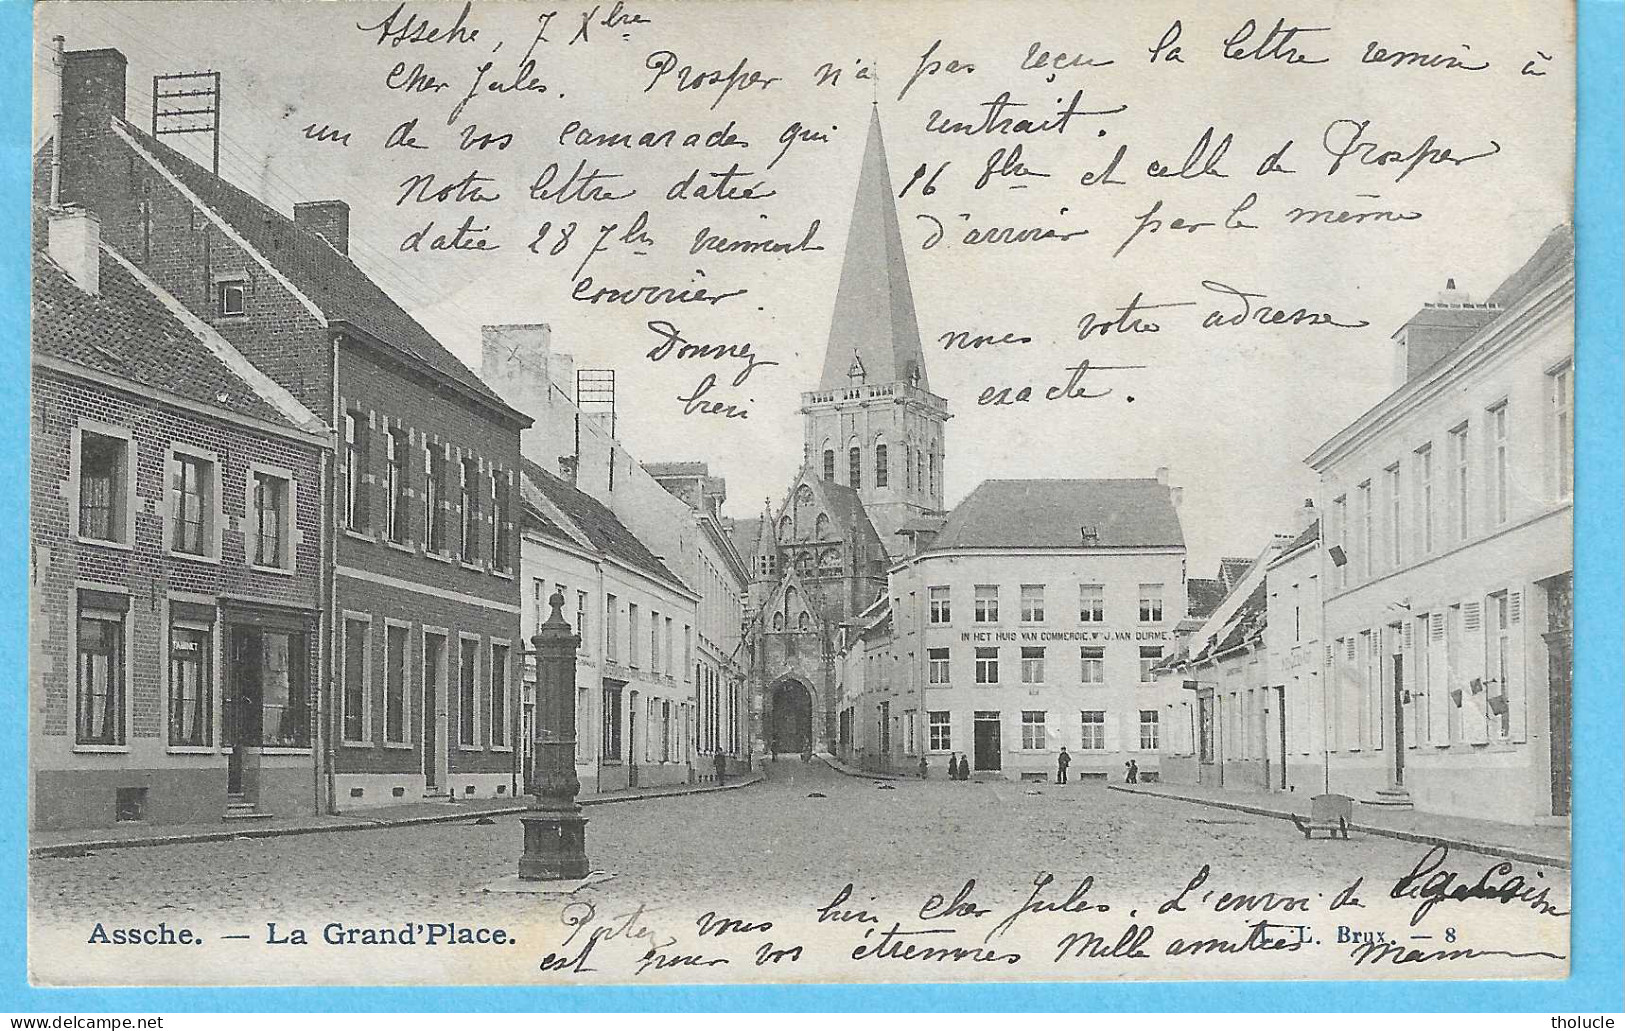 Assche, 7 Xbre
Cher Jules. Prosper n'a pas reçu la lettre remise à
un de vos camarades qui rentrait.
Notre lettre datée 16 8bre et celle de Prosper
datée 28 7bre viennent d'arriver par le même
courrier.
Donnez nous votre adresse
bien exacte.
TABINET
IN HET HUIS VAN COMMERCIE. Wwe J. VAN DURME.
Portez vous bien, cher Jules. L'envoi de
est pour vos étrennes Mille amitiés Maman
Assche. — La Grand'Place.
L. L. Brux. — 8
tholucle